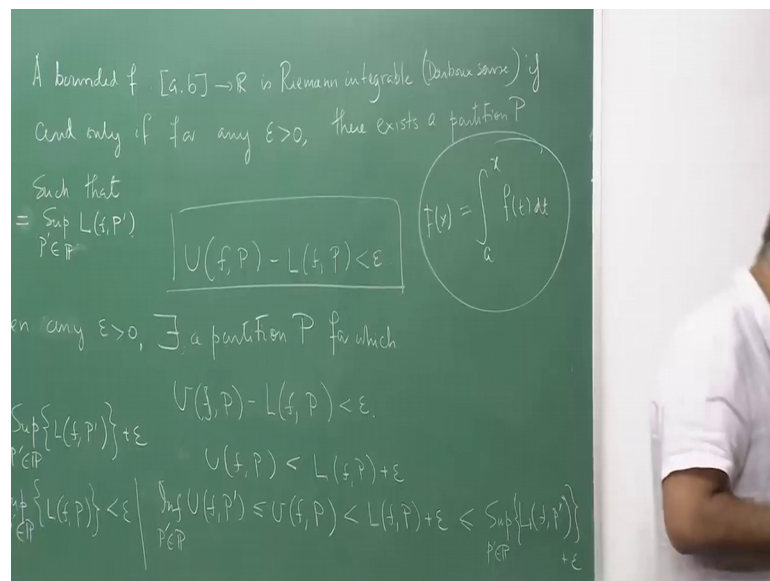 A bounded f [a,b] → ℝ is Riemann integrable (Darboux sense) if
and only if for any ε>0, there exists a partition P
Such that
= Sup L(f,P')
P'∈ℙ
U(f,P) - L(f,P) < ε
F(x) = ∫ₐˣ f(t)dt
en any ε>0, ∃ a partition P for which
U(f,P) - L(f,P) < ε.
Sup{L(f,P')} + ε
P'∈ℙ
U(f,P) < L(f,P) + ε
up{L(f,P)} < ε | Inf U(f,P') ≤ U(f,P) < L(f,P) + ε ≤ Sup{L(f,P')}
∈ℙ P'∈ℙ P'∈ℙ + ε